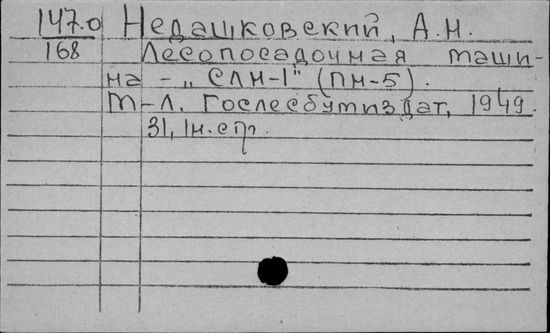 147.0 Недашковский, А.Н.
168 Лесопосадочная маши-
на - „СЛН-1" (ПН-5).
М-Л. Гослесбумиздат, 1949.
31, 1н.стр.